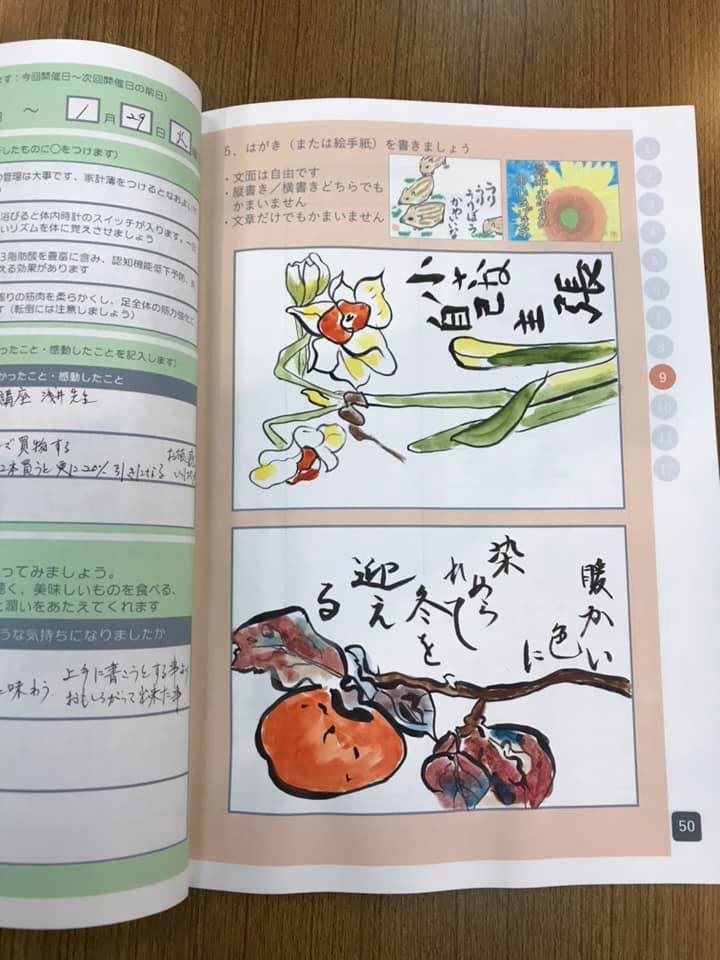 ます：今回開催日～次回開催日の前日）
～ 1月29日 火
したものに○をつけます）
管理は大事です、家計簿をつけるとなおよい
浴びると体内時計のスイッチが入ります。一日
いリズムを体に覚えさせましょう
3脂肪酸を豊富に含み、認知機能低下予防、
える効果があります
周りの筋肉を柔らかくし、足全体の筋力強化
す（転倒には注意しましょう）
ったこと・感動したことを記入します）
かったこと・感動したこと
講座 浅井先生
で買物する
2本買うと更に20%引きになる
ってみましょう。
聴く、美味しいものを食べる、
と潤いをあたえてくれます
うな気持ちになりましたか
と味わう。
上手に書こうとする事より
おもしろがって出来た事
5、はがき（または絵手紙）を書きましょう
・文面は自由です
・縦書き／横書きどちらでも
かまいません
・文章だけでもかまいません
うり
うりぼう
かわいいな
小さな
自己
主
張
暖かい
色
に
染
めら
れて
冬を
迎え
る
1
2
3
4
5
6
7
8
9
10
11
12
50